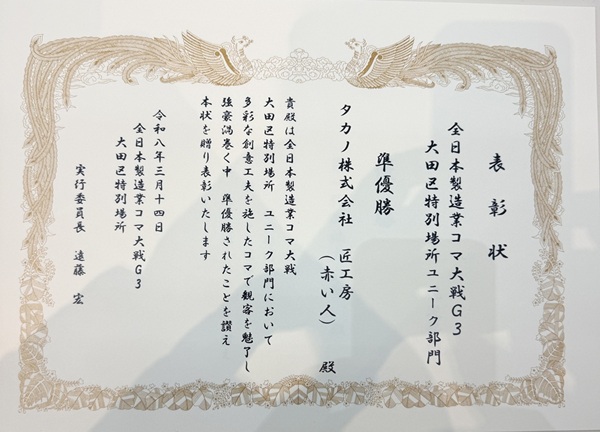 表彰状
全日本製造業コマ大戦G3
大田区特別場所ユニーク部門
準優勝
タカノ株式会社 匠工房
(赤い人) 殿
貴殿は全日本製造業コマ大戦
大田区特別場所 ユニーク部門において
多彩な創意工夫を施したコマで観客を魅了し
強豪渦巻く中 準優勝されたことを讃え
本状を贈り表彰いたします
令和八年三月十四日
全日本製造業コマ大戦G3
大田区特別場所
実行委員長 遠藤 宏